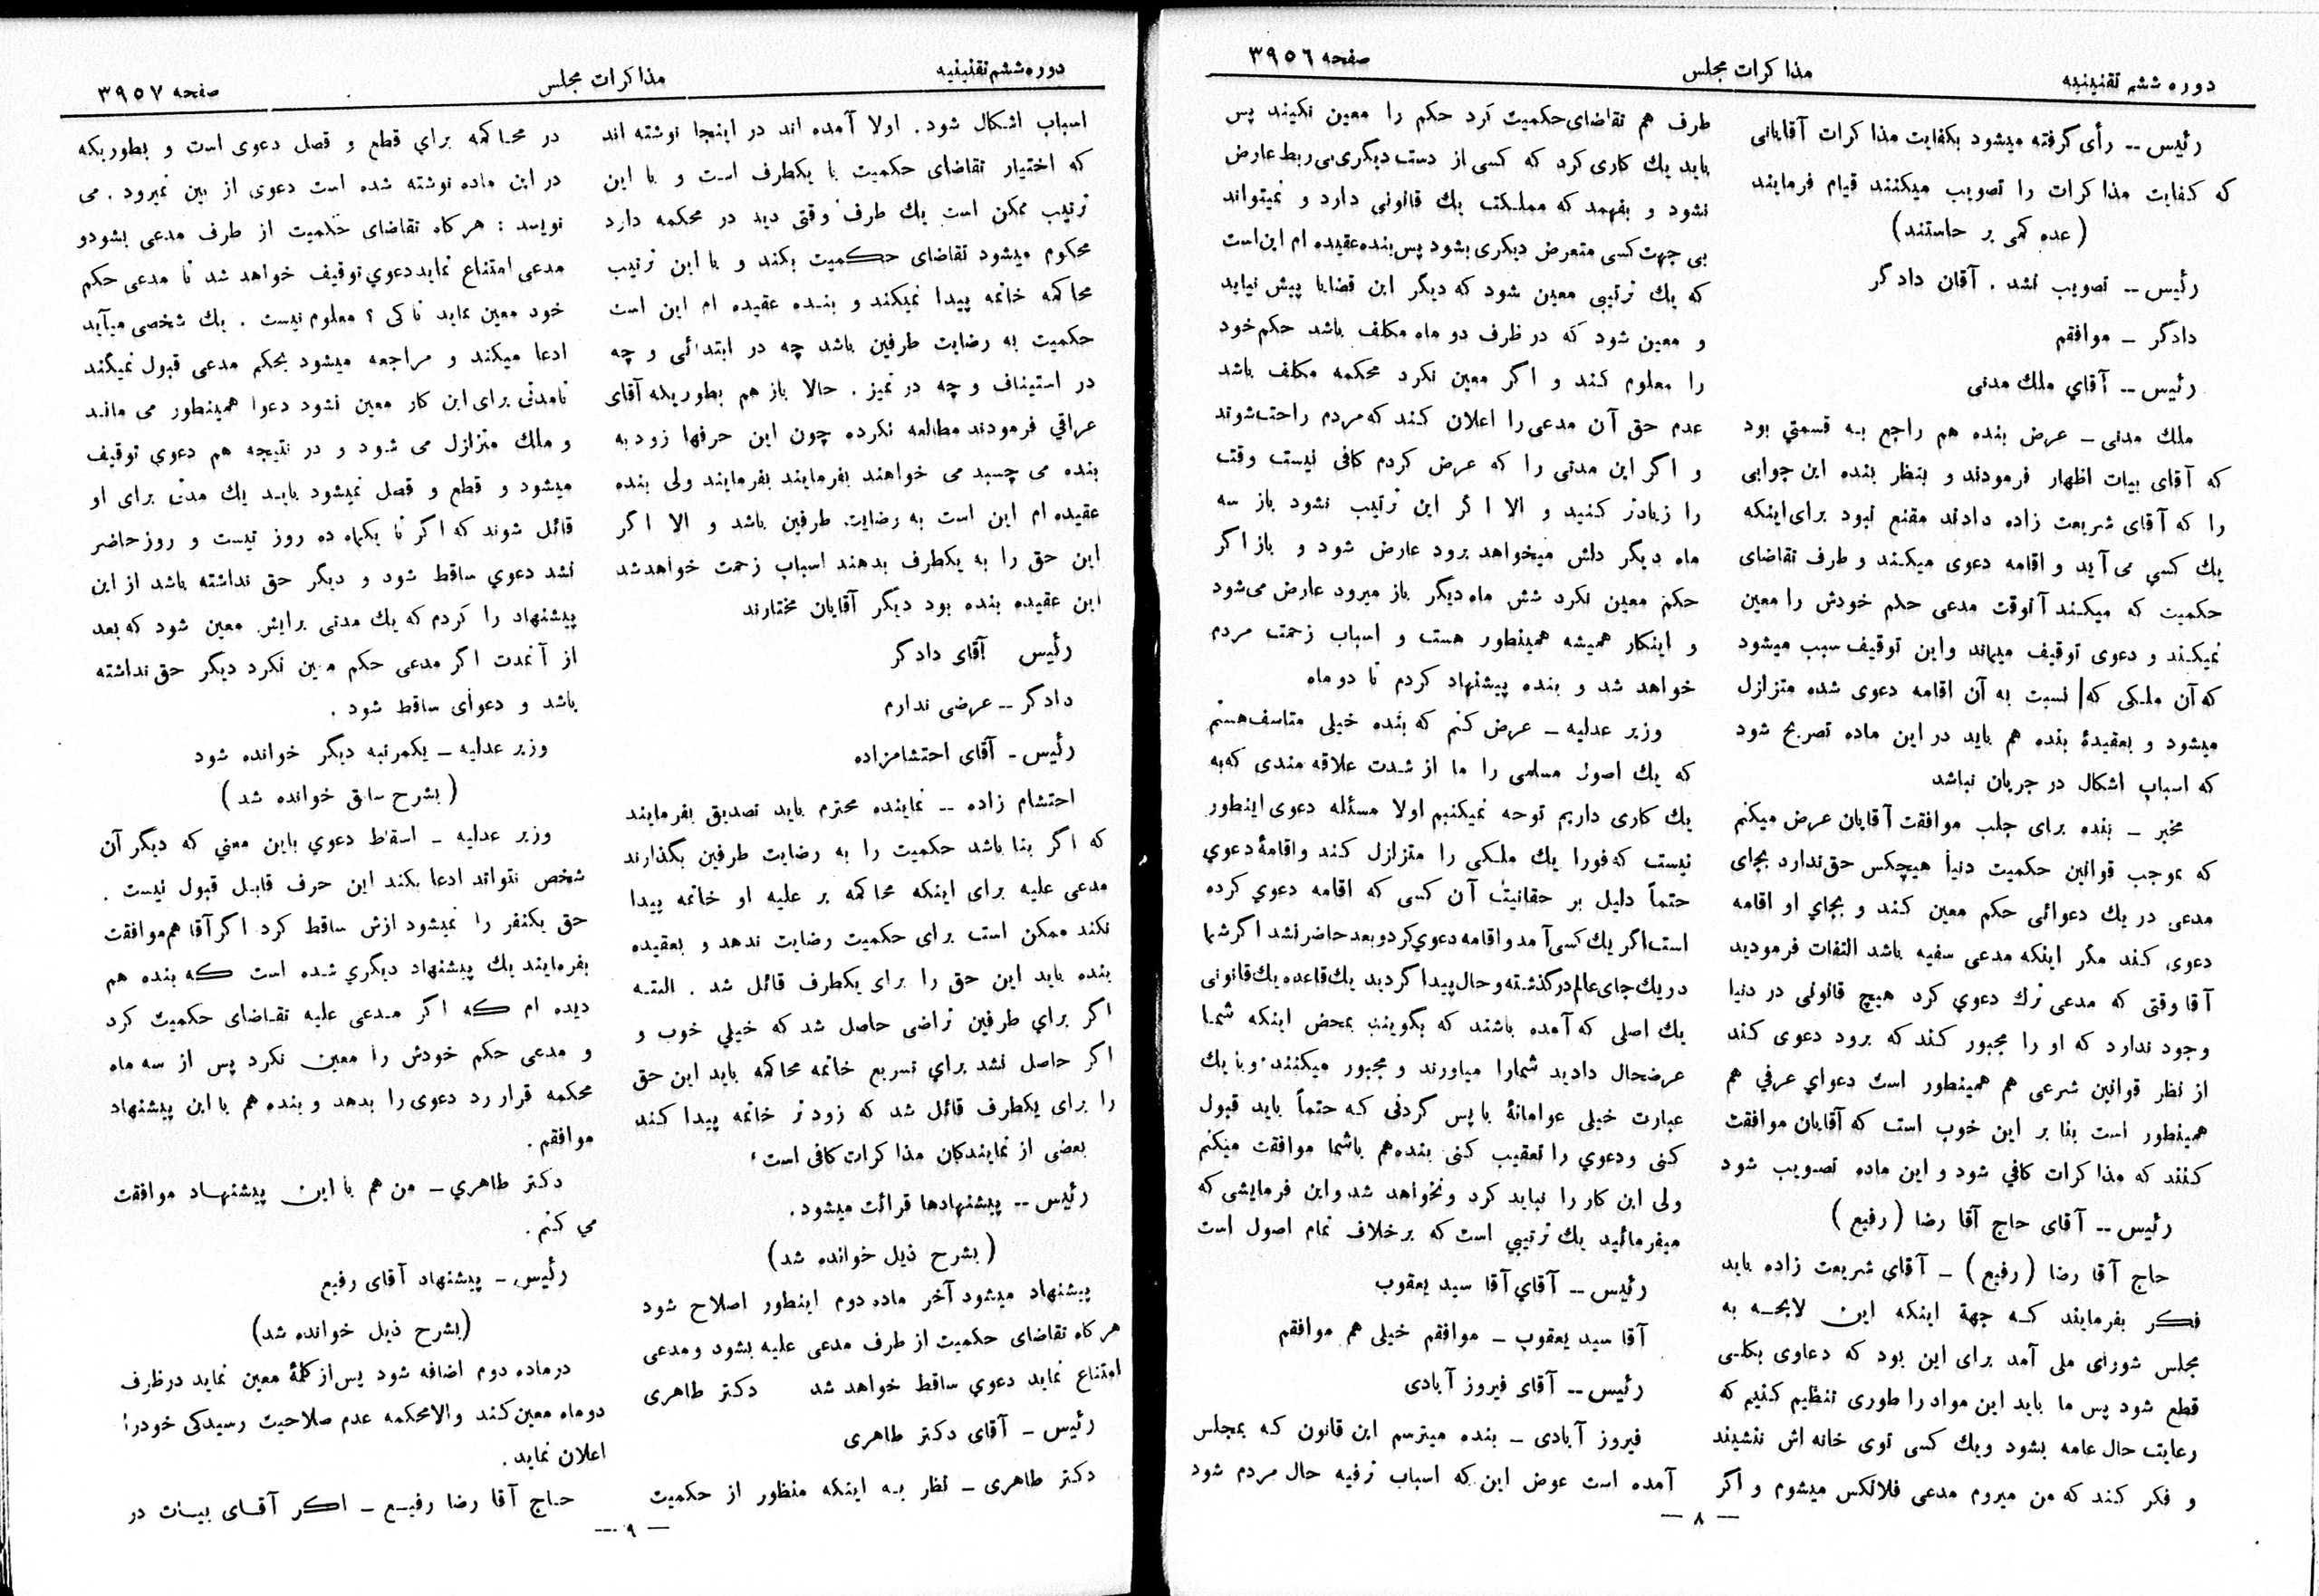 دوره ششم تقنینیه
مذاکرات مجلس
صفحه ۳۹۵٦
رئیس -- رأی گرفته میشود بکفایت مذاکرات آقایانی
که کفایت مذاکرات را تصویب میکنند قیام فرمایند
(عده کمی بر خاستند)
رئیس -- تصویب نشد . آقان دادگر
دادگر - موافقم
رئیس -- آقاي ملك مدنی
ملك مدنی - عرض بنده هم راجع به قسمتي بود
که آقای بیات اظهار فرمودند و بنظر بنده این جوابی
را که آقای شریعت زاده دادند مقنع نبود برای اینکه
یك کسي می آید و اقامه دعوی میکند و طرف تقاضای
حکمیت که میکند آنوقت مدعی حکم خودش را معین
نمیکند و دعوی توقیف میماند واین توقیف سبب میشود
که آن ملکی که نسبت به آن اقامه دعوی شده متزازل
میشود و بعقیدهٔ بنده هم باید در این ماده تصریح شود
که اسباب اشکال در جریان نباشد
مخبر - بنده برای جلب موافقت آقایان عرض میکنم
که بموجب قوانین حکمیت دنیا هیچکس حق ندارد بجای
مدعی در یك دعوائی حکم معین کند و بجاي او اقامه
دعوی کند مگر اینکه مدعی سفیه باشد التفات فرمودید
آقا وقتی که مدعی ترك دعوي کرد هیچ قانونی در دنیا
وجود ندارد که او را مجبور کند که برود دعوی کند
از نظر قوانین شرعی هم همینطور است دعواي عرفي هم
همینطور است بنا بر این خوب است که آقایان موافقت
کنند که مذاکرات کافي شود و این ماده تصویب شود
رئیس -- آقای حاج آقا رضا (رفیع)
حاج آقا رضا (رفیع) - آقاي شریعت زاده باید
فکر بفرمایند که جهة اینکه این لایحه به
مجلس شورای ملی آمد برای این بود که دعاوی بکلی
قطع شود پس ما باید این مواد را طوری تنظیم کنیم که
رعایت حال عامه بشود ویك کسی توی خانه اش ننشیند
و فکر کند که من میروم مدعی فلانکس میشوم و اگر
طرف هم تقاضای حکمیت کرد حکم را معین نکنید پس
باید یك کاری کرد که کسی از دست دیگری بی ربط عارض
نشود و بفهمد که مملکت یك قانونی دارد و نمیتواند
بی جهت کسی متعرض دیگری بشود پس بنده عقیده ام این است
که یك ترتیبی معین شود که دیگر این قضایا پیش نیاید
و معین شود که در ظرف دو ماه مکلف باشد حکم خود
را معلوم کند و اگر معین نکرد محکمه مکلف باشد
عدم حق آن مدعی را اعلان کند که مردم راحت شوند
و اگر این مدتی را که عرض کردم کافی نیست وقت
را زیادتر کنید و الا اگر این ترتیب نشود باز سه
ماه دیگر دلش میخواهد برود عارض شود و باز اگر
حکم معین نکرد شش ماه دیگر باز میرود عارض می شود
و اینکار همیشه همینطور هست و اسباب زحمت مردم
خواهد شد و بنده پیشنهاد کردم تا دو ماه
وزیر عدلیه - عرض کنم که بنده خیلی متاسف هستم
که یك اصول مسلمی را ما از شدت علاقه مندی که به
یك کاری داریم توجه نمیکنیم اولا مسئله دعوی اینطور
نیست که فورا یك ملکی را متزازل کند و اقامهٔ دعوي
حتماً دلیل بر حقانیت آن کسی که اقامه دعوي کرده
است اگر یك کسی آمد و اقامه دعوي کرد و بعد حاضر نشد اگر شما
در یك جای عالم در گذشته و حال پیدا کردید یك قاعده یك قانونی
یك اصلی که آمده باشند که بگویند بمحض اینکه شما
عرضحال دادید شمارا میاورند و مجبور میکنند و با یك
عبارت خیلی عوامانهٔ با پس گردنی که حتماً باید قبول
کنی ودعوي را تعقیب کنی بنده هم باشما موافقت میکنم
ولی این کار را نباید کرد ونخواهد شد واین فرمایشی که
میفرمائید یك ترتیبی است که برخلاف تمام اصول است
رئیس -- آقاي آقا سید یعقوب
آقا سید یعقوب - موافقم خیلی هم موافقم
رئیس -- آقای فیروز آبادی
فیروز آبادی - بنده میترسم این قانون که بمجلس
آمده است عوض این که اسباب ترفیه حال مردم شود
— ۸ —
دوره ششم تقنینیه
مذاکرات مجلس
صفحه ۳۹۵۷
اسباب اشکال شود . اولا آمده اند در اینجا نوشته اند
که اختیار تقاضای حکمیت با یکطرف است و با این
ترتیب ممکن است یك طرف وقتی دید در محکمه دارد
محکوم میشود تقاضای حکمیت بکند و با این ترتیب
محاکمه خاتمه پیدا نمیکند و بنده عقیده ام این است
حکمیت به رضایت طرفین باشد چه در ابتدائی و چه
در استیناف و چه در تمیز . حالا باز هم بطوریکه آقای
عراقي فرمودند مطالعه نکرده چون این حرفها زود به
بنده می چسبد می خواهند بفرمایند بفرمایند ولی بنده
عقیده ام این است به رضایت طرفین باشد و الا اگر
این حق را به یکطرف بدهند اسباب زحمت خواهد شد
این عقیده بنده بود دیگر آقایان مختارند
رئیس آقای دادگر
دادگر -- عرضی ندارم
رئیس - آقای احتشامزاده
احتشام زاده -- نماینده محترم باید تصدیق بفرمایند
که اگر بنا باشد حکمیت را به رضایت طرفین بگذارند
مدعی علیه برای اینکه محاکمه بر علیه او خاتمه پیدا
نکند ممکن است برای حکمیت رضایت ندهد و بعقیده
بنده باید این حق را برای یکطرف قائل شد . البته
اگر براي طرفین تراضی حاصل شد که خیلي خوب و
اگر حاصل نشد براي تسریع خاتمه محاکمه باید این حق
را برای یکطرف قائل شد که زودتر خاتمه پیدا کند
بعضی از نمایندگان مذاکرات کافی است
رئیس -- پیشنهادها قرائت میشود .
(بشرح ذیل خوانده شد)
پیشنهاد میشود آخر ماده دوم اینطور اصلاح شود
هرگاه تقاضای حکمیت از طرف مدعی علیه بشود ومدعی
امتناع نماید دعوي ساقط خواهد شد دکتر طاهری
رئیس - آقای دکتر طاهری
دکتر طاهری - نظر به اینکه منظور از حکمیت
در محاکمه براي قطع و فصل دعوی است و بطوریکه
در این ماده نوشته شده است دعوی از بین نمیرود . می
نویسد : هرگاه تقاضای حکمیت از طرف مدعی بشودو
مدعی امتناع نماید دعوي توقیف خواهد شد تا مدعی حکم
خود معین نماید تا کی ؟ معلوم نیست . یك شخصی میآید
ادعا میکند و مراجعه میشود بحکم مدعی قبول نمیکند
تامدتی برای این کار معین نشود دعوا همینطور می ماند
و ملك متزازل می شود و در نتیجه هم دعوی توقیف
میشود و قطع و فصل نمیشود باید یك مدتی برای او
قائل شوند که اگر تا یکماه ده روز بیست و روز حاضر
نشد دعوي ساقط شود و دیگر حق نداشته باشد از این
پیشنهاد را کردم که یك مدتی برایش معین شود که بعد
از آنمدت اگر مدعی حکم معین نکرد دیگر حق نداشته
باشد و دعوای ساقط شود .
وزیر عدلیه - یکمرتبه دیگر خوانده شود
(بشرح سابق خوانده شد)
وزیر عدلیه - اسقاط دعوي باین معني که دیگر آن
شخص نتواند ادعا بکند این حرف قابل قبول نیست .
حق یکنفر را نمیشود ازش ساقط کرد اگر آقا هم موافقت
بفرمایند یك پیشنهاد دیگري شده است که بنده هم
دیده ام که اگر مدعی علیه تقاضای حکمیت کرد
و مدعی حکم خودش را معین نکرد پس از سه ماه
محکمه قرار رد دعوی را بدهد و بنده هم با این پیشنهاد
موافقم .
دکتر طاهري - من هم با این پیشنهاد موافقت
می کنم .
رئیس - پیشنهاد آقای رفیع
(بشرح ذیل خوانده شد)
درماده دوم اضافه شود پس از کلمهٔ معین نماید درظرف
دوماه معین کند والامحکمه عدم صلاحیت رسیدگی خودرا
اعلان نماید .
حاج آقا رضا رفیع - اگر آقای بیات در
— ۹ —